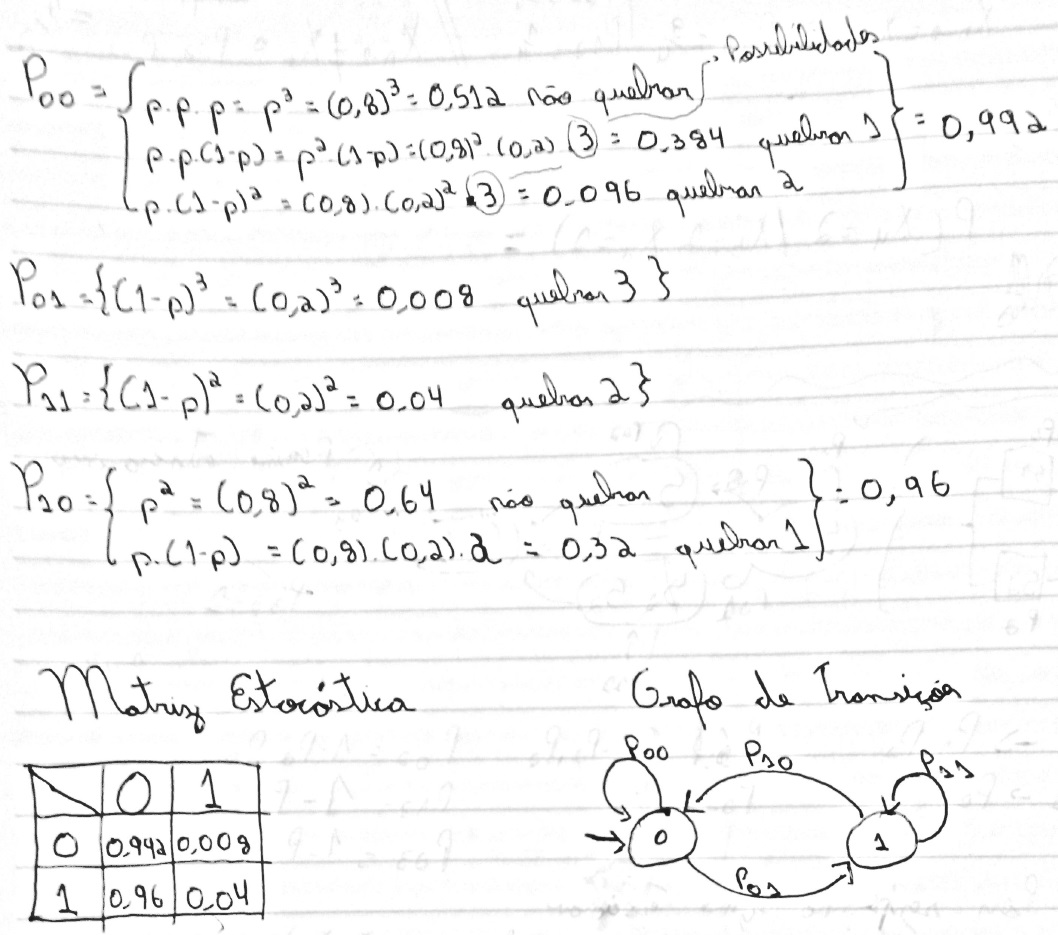 Possibilidades
P00 = { p.p.p = p³ = (0,8)³ = 0,512 não quebrar
p.p.(1-p) = p².(1-p) = (0,8)².(0,2).3 = 0.384 quebrar 1 } = 0,992
p.(1-p)² = (0,8).(0,2)².3 = 0.096 quebrar 2
P01 = {(1-p)³ = (0,2)³ = 0,008 quebrar 3 }
P11 = {(1-p)² = (0,2)² = 0.04 quebrar 2}
P10 = { p² = (0,8)² = 0,64 não quebrar } = 0,96
p.(1-p) = (0,8).(0,2).2 = 0,32 quebrar 1
Matriz Estocástica Grafo de Transição
0 1
0 0.942 0,008
1 0.96 0,04
P00 P10 P11
0 1
P01